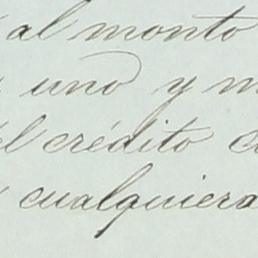 al monto
uno y m
el crédito
cualquiera